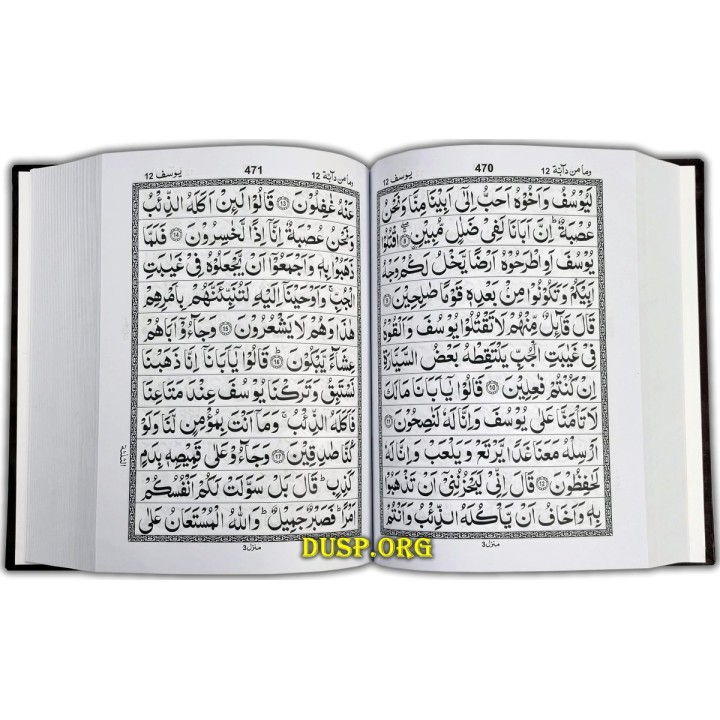 وما من دآبة 12
470
يوسف 12
لَيُوسُفُ وَاَخُوْهُ اَحَبُّ اِلٰۤى اَبِيْنَا مِنَّا وَنَحْنُ
عُصْبَةٌ ؕ اِنَّ اَبَانَا لَفِىْ ضَلٰلٍ مُّبِيْنِ ۨ ۚۖ ﴿۸﴾ اقْتُلُوْا
يُوْسُفَ اَوِ اطْرَحُوْهُ اَرْضًا يَّخْلُ لَكُمْ وَجْهُ
اَبِيْكُمْ وَتَكُوْنُوْا مِنْۢ بَعْدِهٖ قَوْمًا صٰلِحِيْنَ ﴿۹﴾
قَالَ قَآئِلٌ مِّنْهُمْ لَا تَقْتُلُوْا يُوْسُفَ وَاَلْقُوْهُ
فِىْ غَيٰبَتِ الْجُبِّ يَلْتَقِطْهُ بَعْضُ السَّيَّارَةِ
اِنْ كُنْتُمْ فٰعِلِيْنَ ﴿۱۰﴾ قَالُوْا يٰۤاَبَانَا مَالَكَ
لَا تَاْمَنَّا عَلٰى يُوْسُفَ وَاِنَّا لَهٗ لَنٰصِحُوْنَ ﴿۱۱﴾
اَرْسِلْهُ مَعَنَا غَدًا يَّرْتَعْ وَيَلْعَبْ وَاِنَّا لَهٗ
لَحٰفِظُوْنَ ﴿۱۲﴾ قَالَ اِنِّىْ لَيَحْزُنُنِىْۤ اَنْ تَذْهَبُوْا
بِهٖ وَاَخَافُ اَنْ يَّاْكُلَهُ الذِّئْبُ وَاَنْتُمْ
منزل 3
وما من دآبة 12
471
يوسف 12
عَنْهُ غٰفِلُوْنَ ﴿۱۳﴾ قَالُوْا لَئِنْ اَكَلَهُ الذِّئْبُ
وَنَحْنُ عُصْبَةٌ اِنَّاۤ اِذًا لَّخٰسِرُوْنَ ﴿۱۴﴾ فَلَمَّا
ذَهَبُوْا بِهٖ وَاَجْمَعُوْۤا اَنْ يَّجْعَلُوْهُ فِىْ غَيٰبَتِ
الْجُبِّ ۚ وَاَوْحَيْنَاۤ اِلَيْهِ لَتُنَبِّئَنَّهُمْ بِاَمْرِهِمْ
هٰذَا وَهُمْ لَا يَشْعُرُوْنَ ﴿۱۵﴾ وَجَآءُوْۤ اَبَاهُمْ
عِشَآءً يَّبْكُوْنَ ؕ ﴿۱۶﴾ قَالُوْا يٰۤاَبَانَاۤ اِنَّا ذَهَبْنَا
نَسْتَبِقُ وَتَرَكْنَا يُوْسُفَ عِنْدَ مَتَاعِنَا
فَاَكَلَهُ الذِّئْبُ ۚ وَمَاۤ اَنْتَ بِمُؤْمِنٍ لَّنَا وَلَوْ
كُنَّا صٰدِقِيْنَ ﴿۱۷﴾ وَجَآءُوْ عَلٰى قَمِيْصِهٖ بِدَمٍ
كَذِبٍ ؕ قَالَ بَلْ سَوَّلَتْ لَكُمْ اَنْفُسُكُمْ
اَمْرًا ؕ فَصَبْرٌ جَمِيْلٌ ؕ وَاللّٰهُ الْمُسْتَعَانُ عَلٰى
منزل 3
DUSP.ORG